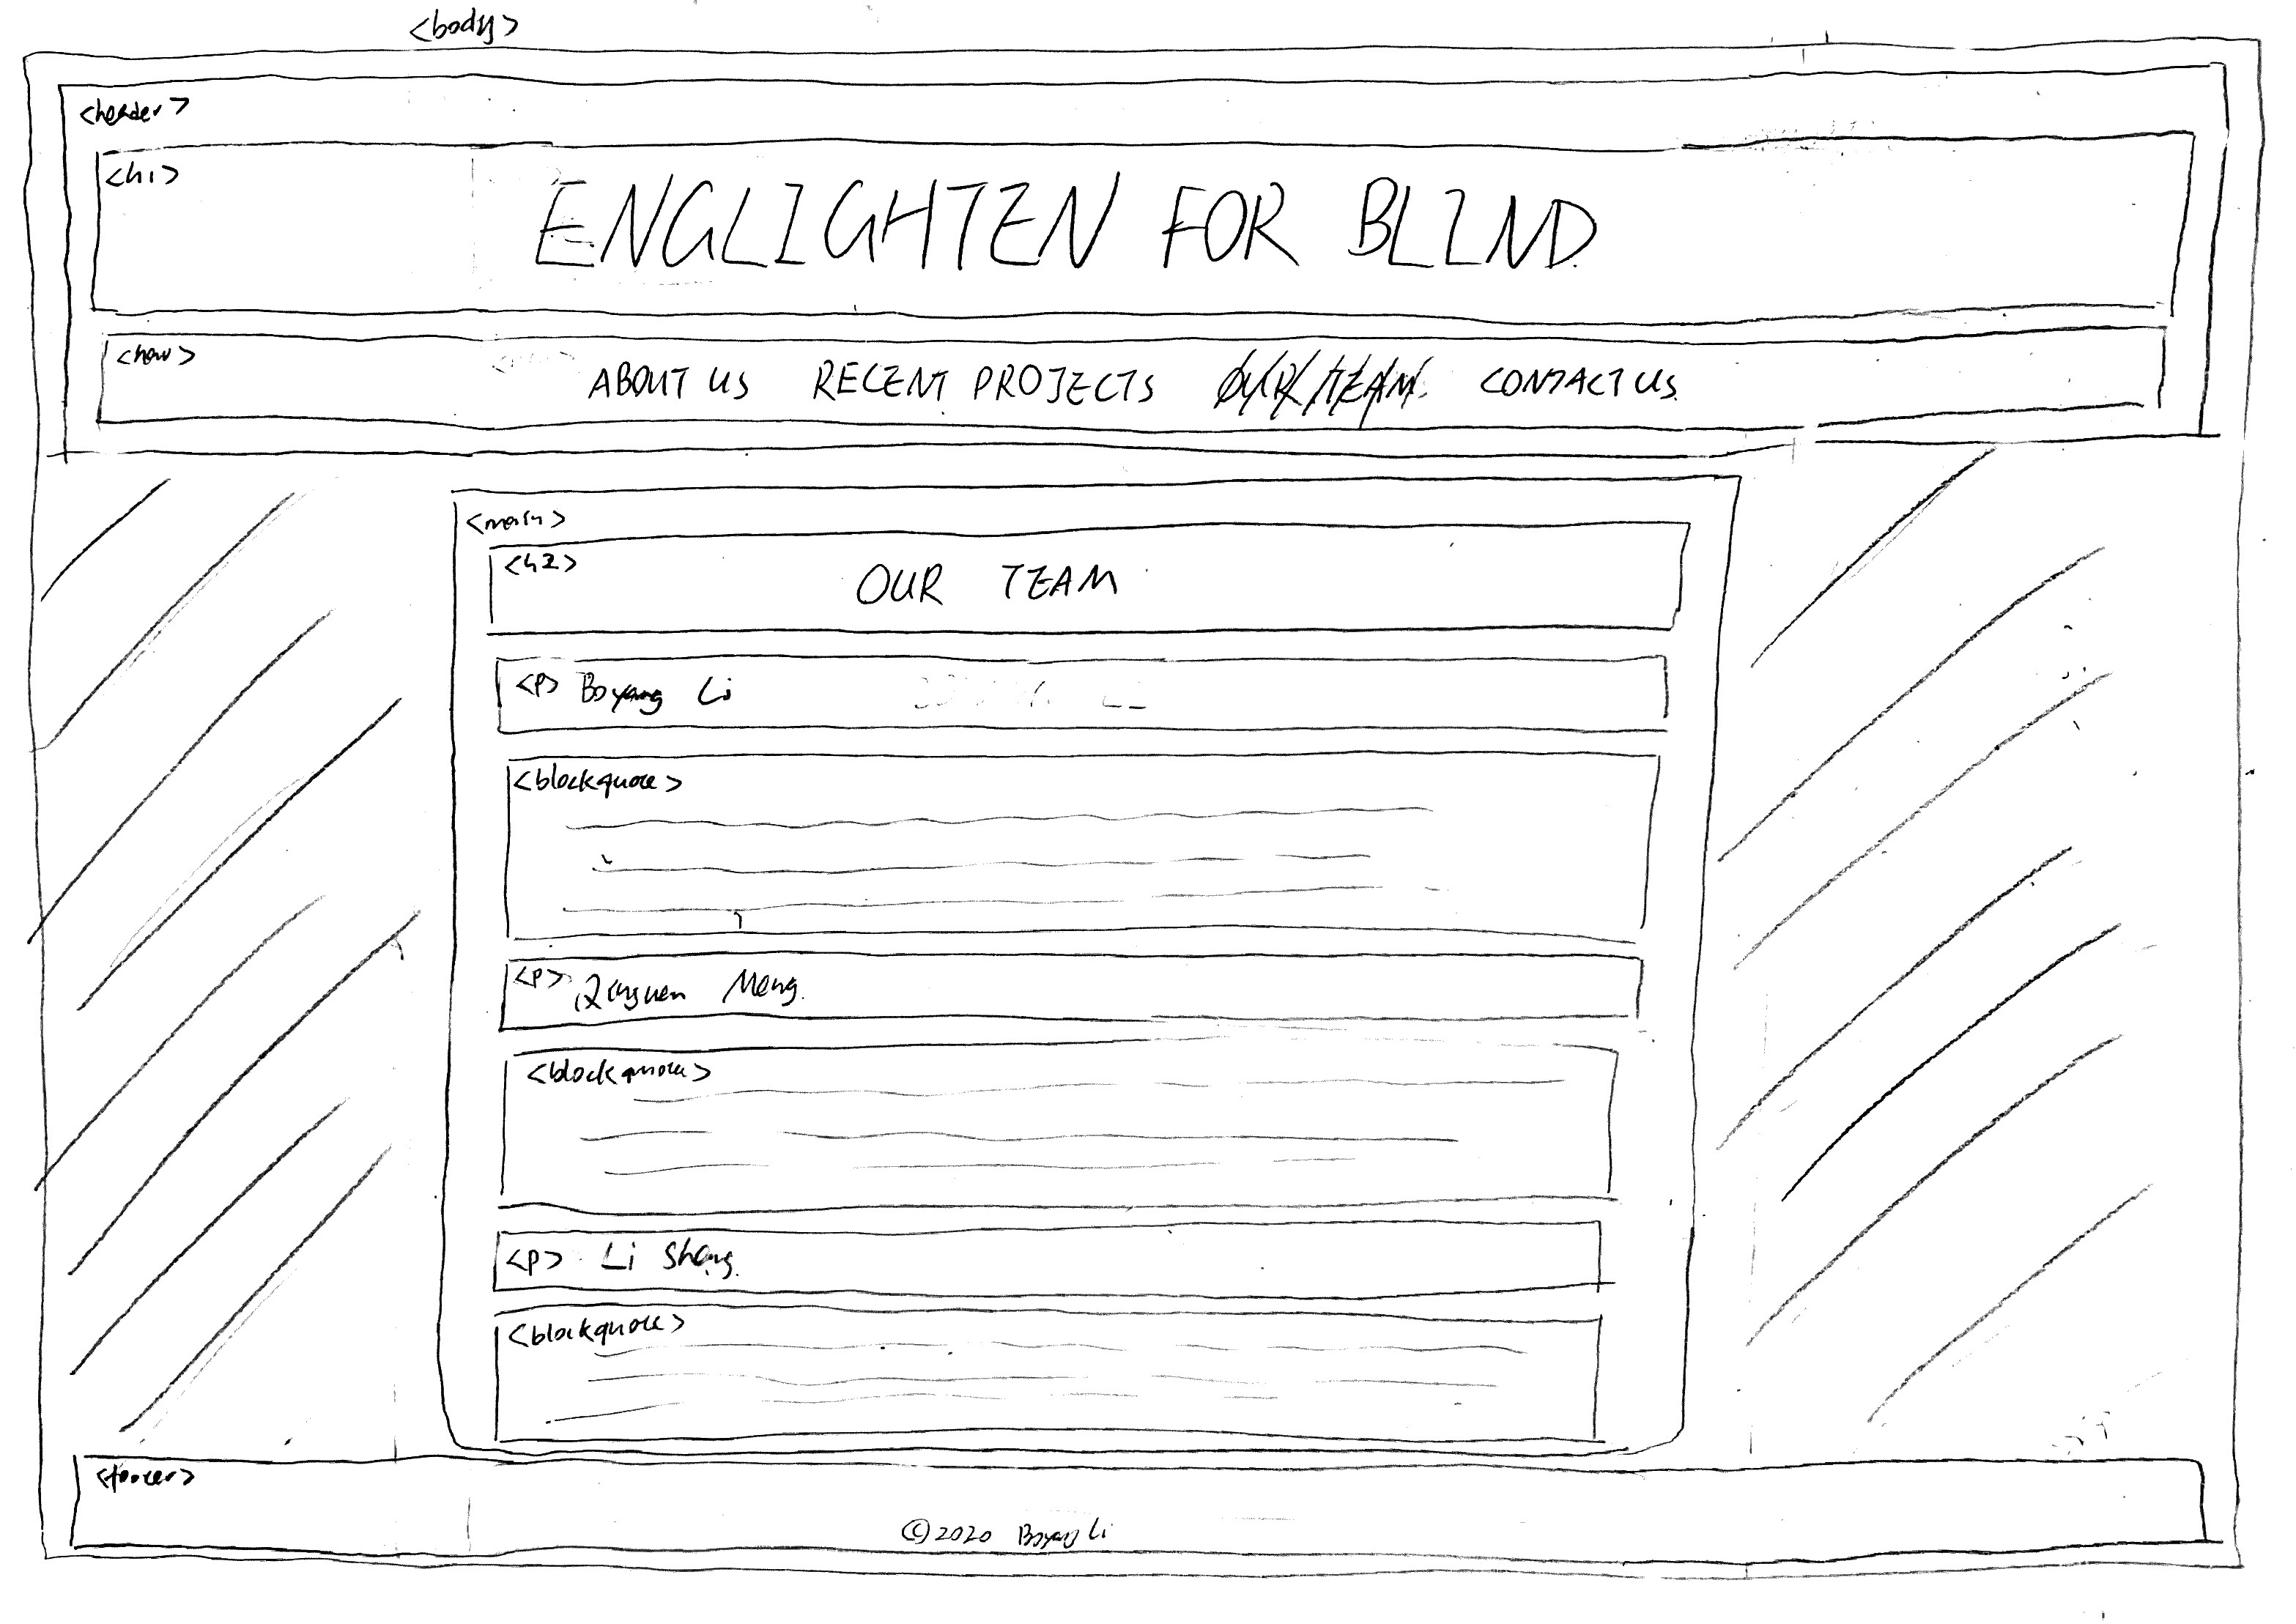 <body>
<header>
<h1>
ENGLIGHTEN FOR BLIND
<nav>
ABOUT US RECENT PROJECTS OUR TEAM CONTACT US
<main>
<h2>
OUR TEAM
<p> Boyang Li
<blockquote>
<p> Meng
<blockquote>
<p> Li Sheng
<blockquote>
<footer>
©2020 Boyang Li